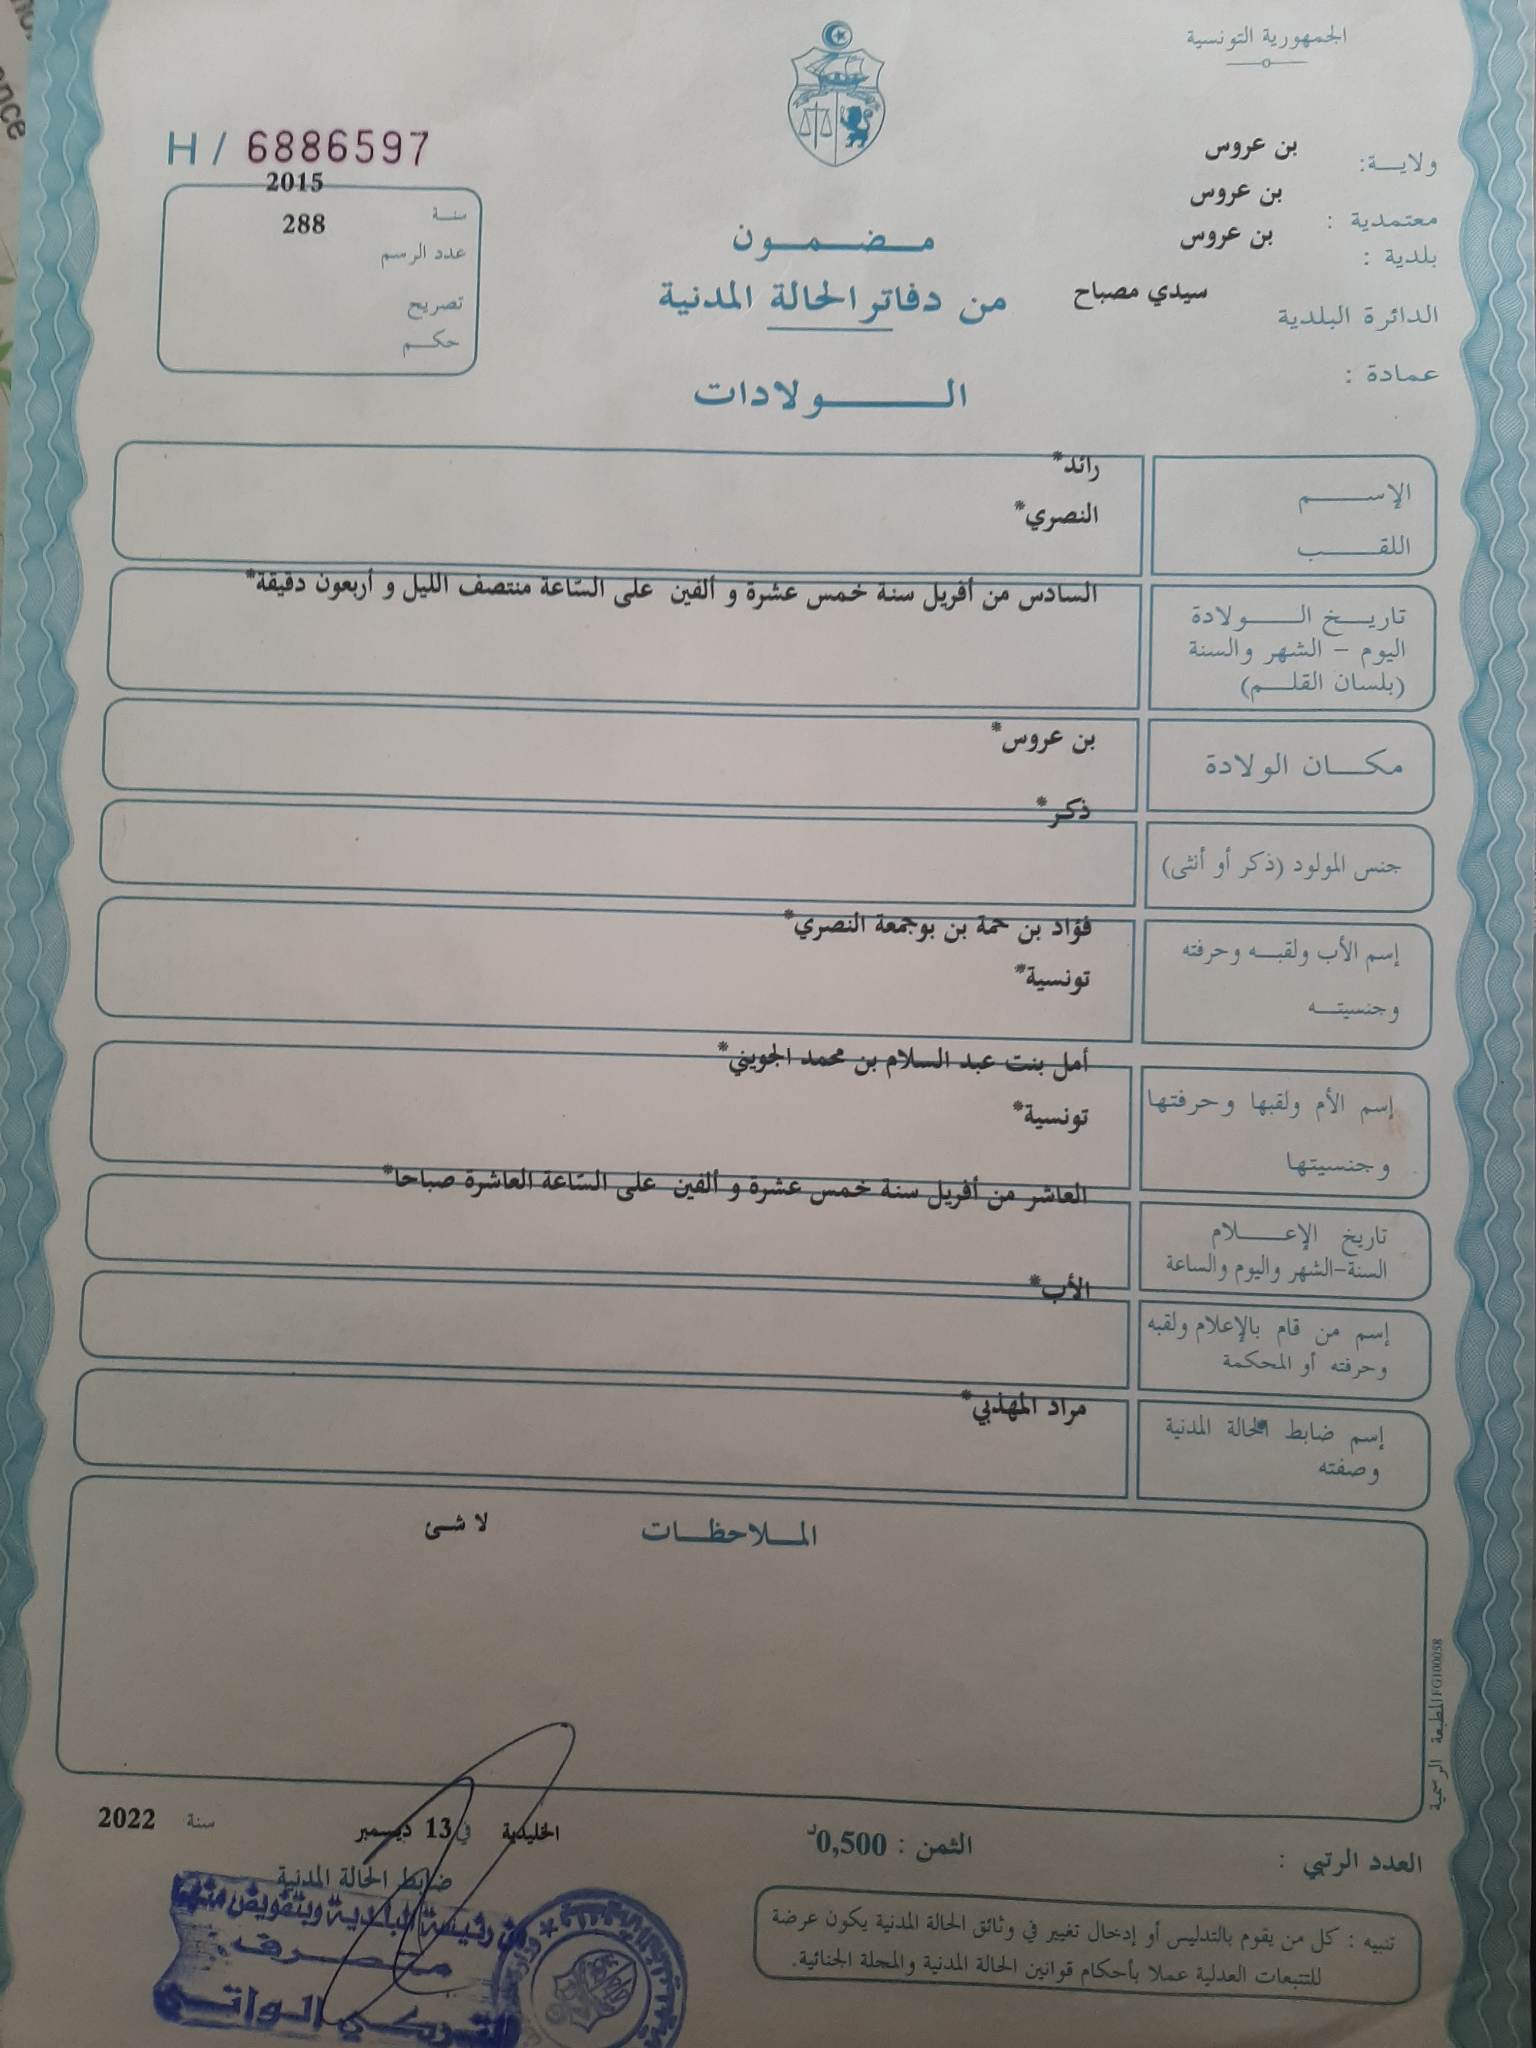 الجمهورية التونسية
ولايـــة: بن عروس
معتمدية : بن عروس
بلدية : بن عروس
الدائرة البلدية سيدي مصباح
عمادة :
مـضـمـون
من دفاتر الحالة المدنية
الـولادات
H / 6886597
سنة 2015
عدد الرسم 288
تصريح
حكم
الإســـم رائد*
اللقـــب النصري*
تاريـخ الـــولادة السادس من أفريل سنة خمس عشرة و ألفين على السّاعة منتصف الليل و أربعون دقيقة*
اليوم - الشهر والسنة
(بلسان القلـم)
مكـــان الولادة بن عروس*
جنس المولود (ذكر أو أنثى) ذكر*
إسم الأب ولقبـه وحرفته فؤاد بن حمة بن بوجمعة النصري*
وجنسيتـه تونسية*
إسم الأم ولقبها وحرفتها أمل بنت عبد السلام بن محمد الجويني*
وجنسيتها تونسية*
تاريخ الإعـــلام العاشر من أفريل سنة خمس عشرة و ألفين على السّاعة العاشرة صباحا*
السنة-الشهر واليوم والساعة
إسم من قام بالإعلام ولقبه الأب*
وحرفته أو المحكمة
إسم ضابط الحالة المدنية مراد المهذبي*
وصفته
الملاحظـات لا شئ
المطبعة الرسمية
العدد الرتبي :
الثمن : 0,500د
الخليدية في 13 ديسمبر سنة 2022
ضابط الحالة المدنية
تنبيه : كل من يقوم بالتدليس أو إدخال تغيير في وثائق الحالة المدنية يكون عرضة
للتتبعات العدلية عملا بأحكام قوانين الحالة المدنية والمجلة الجنائية.
عن رئيسة البلدية وبتفويض منها
متصرف